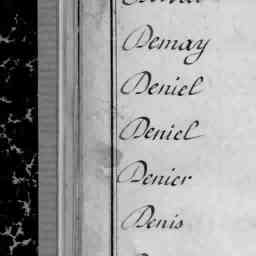 Demay
Deniel
Deniel
Denier
Denis